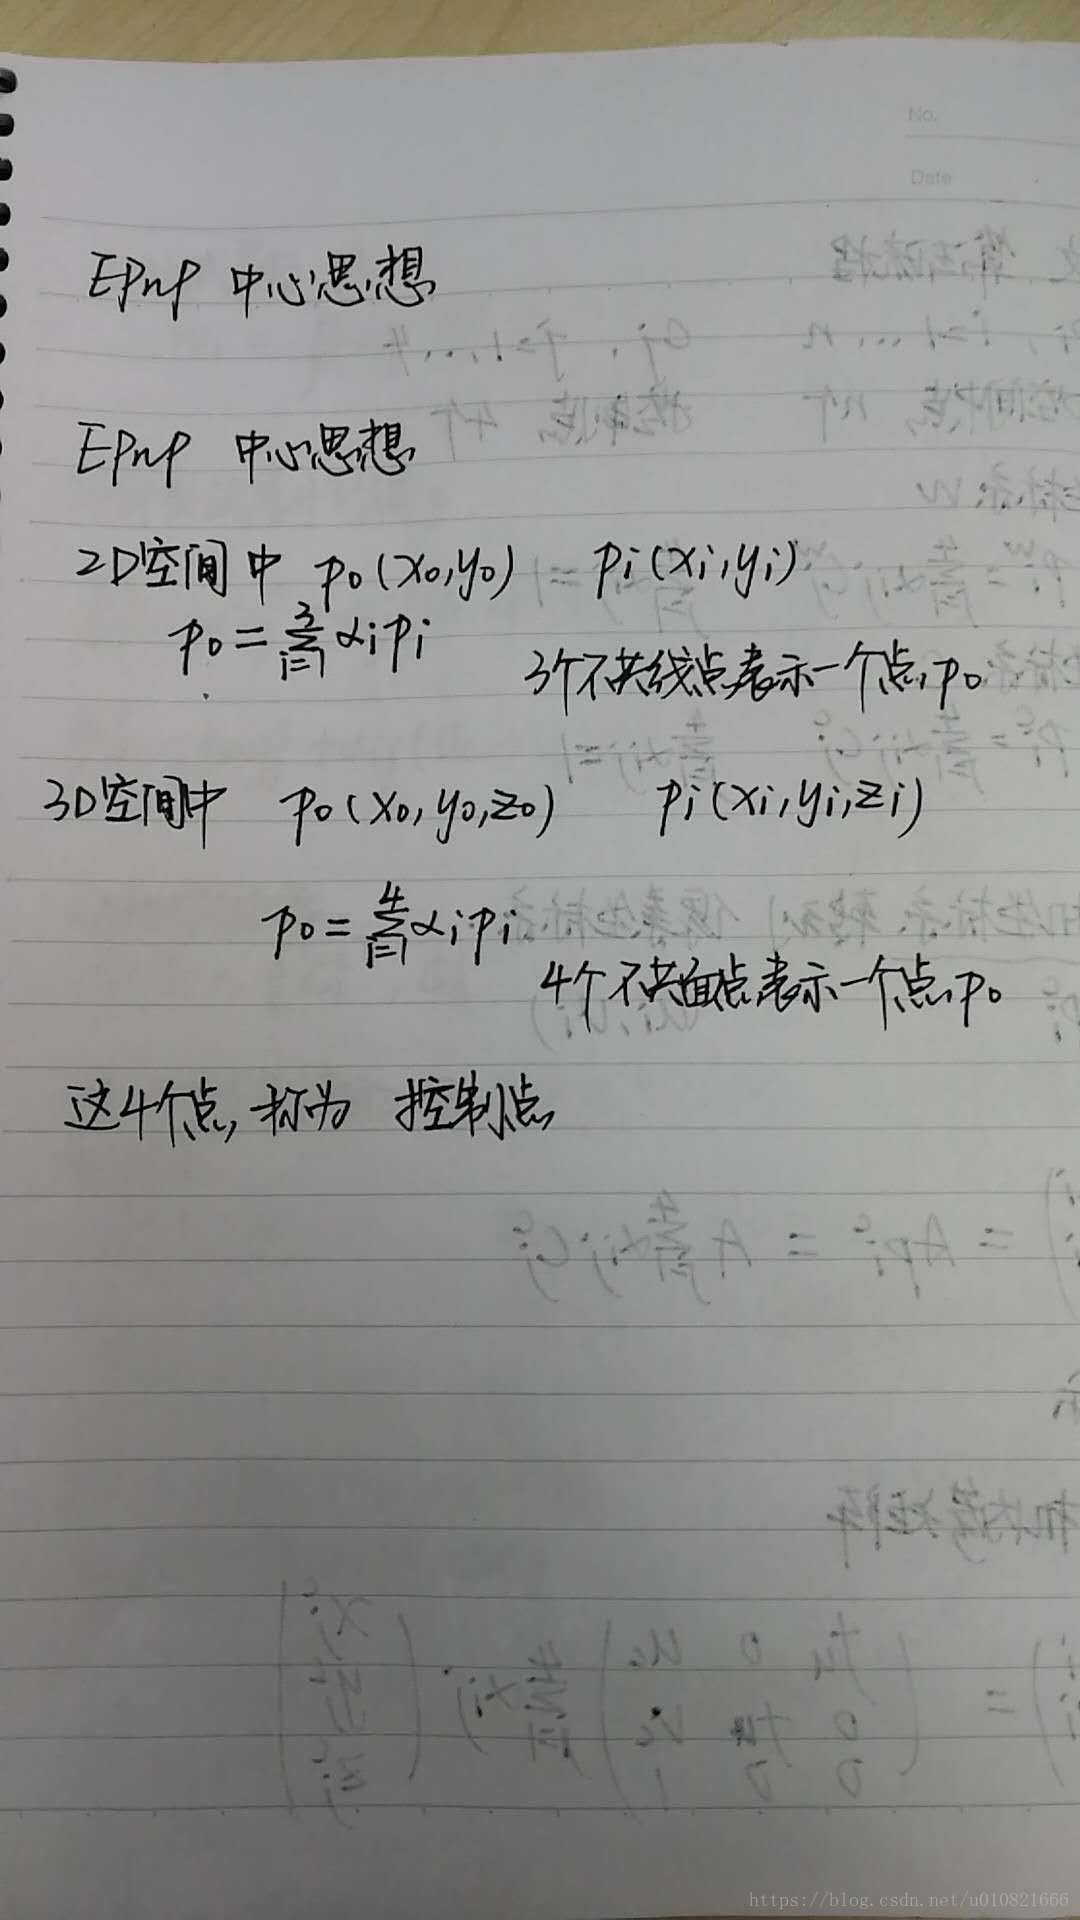 No.
Date
EPnP 中心思想
EPnP 中心思想
2D空间中 p₀(x₀,y₀) pᵢ(xᵢ,yᵢ)
p₀ = ∑ᵢ₌₁³ αᵢpᵢ
3个不共线点表示一个点p₀
3D空间中 p₀(x₀,y₀,z₀) pᵢ(xᵢ,yᵢ,zᵢ)
p₀ = ∑ᵢ₌₁⁴ αᵢpᵢ
4个不共面点表示一个点p₀
这4个点,称为 控制点
https://blog.csdn.net/u010821666